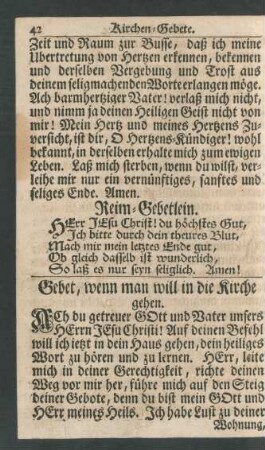 42 Kirchen-Gebete.
Zeit und Raum zur Busse, daß ich meine
Ubertretung von Hertzen erkennen, bekennen
und derselben Vergebung und Trost aus
deinem seligmachenden Wort erlangen möge.
Ach barmhertziger Vater! verlaß mich nicht,
und nimm ja deinen Heiligen Geist nicht von
mir! Mein Hertz und meines Hertzens Zu-
versicht, ist dir, O Hertzens-Kündiger! wohl
bekannt, in derselben erhalte mich zum ewigen
Leben. Laß mich sterben, wenn du wilst, ver-
leihe mir nur ein vernünftiges, sanftes und
seliges Ende. Amen.
Reim-Gebetlein.
HErr JEsu Christ! du höchstes Gut,
Ich bitte durch dein theures Blut,
Mach mir mein letztes Ende gut,
Ob gleich dasselb ist wunderlich,
So laß es nur seyn seliglich. Amen!
Gebet, wenn man will in die Kirche
gehen.
ACh du getreuer GOtt und Vater unsers
HErrn JEsu Christi! Auf deinen Befehl
will ich jetzt in dein Haus gehen, dein heiliges
Wort zu hören und zu lernen. HErr, leite
mich in deiner Gerechtigkeit, richte deinen
Weg vor mir her, führe mich auf den Steig
deiner Gebote, denn du bist mein GOtt und
HErr meines Heils. Ich habe Lust zu deiner
Wohnung,